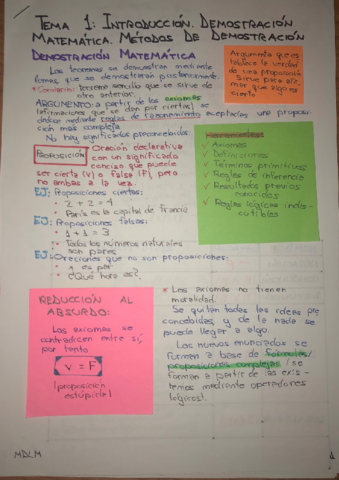 TEMA 1: INTRODUCCIÓN. DEMOSTRACIÓN
MATEMÁTICA. MÉTODOS DE DEMOSTRACIÓN
DEMOSTRACIÓN MATEMÁTICA
Los teoremas se demuestran mediante
lemas, que se demostrarán posteriormente.
Corolario: teorema sencillo que se sirve de
otro anterior.
ARGUMENTO: a partir de los axiomas
(afirmaciones que se dan por ciertas), se
deduce mediante reglas de razonamiento aceptadas una proposi-
ción más compleja
No hay significados preconcebidos.
Argumento que es-
tablece la verdad
de una proposición
Sirve para afir-
mar que algo es
cierto
PROPOSICIÓN
Oración declarativa
con un significado
conciso que puede
ser cierta (V) o falsa (F), pero
no ambas a la vez.
EJ: Proposiciones ciertas:
• 2 + 2 = 4
• París es la capital de Francia
EJ: Proposiciones falsas:
• 1 + 1 = 3
• Todos los números naturales
son pares
EJ: Oraciones que no son proposiciones:
es par
• ¿Qué hora es?
Herramientas
✓ Axiomas
✓ Definiciones
✓ Términos primitivos
✓ Reglas de inferencia
✓ Resultados previos
conocidos
✓ Reglas lógicas indis-
cutibles
REDUCCIÓN AL
ABSURDO:
Los axiomas se
contradicen entre sí,
por tanto
V = F
(proposición
estúpida)
• Los axiomas no tienen
moralidad.
Se quitan todas las ideas pre
concebidas y de la nada se
puede llegar a algo.
Los nuevos enunciados se
forman a base de fórmulas/
proposiciones complejas (se
forman a partir de las exis-
tentes mediante operadores
lógicos).
MDLM